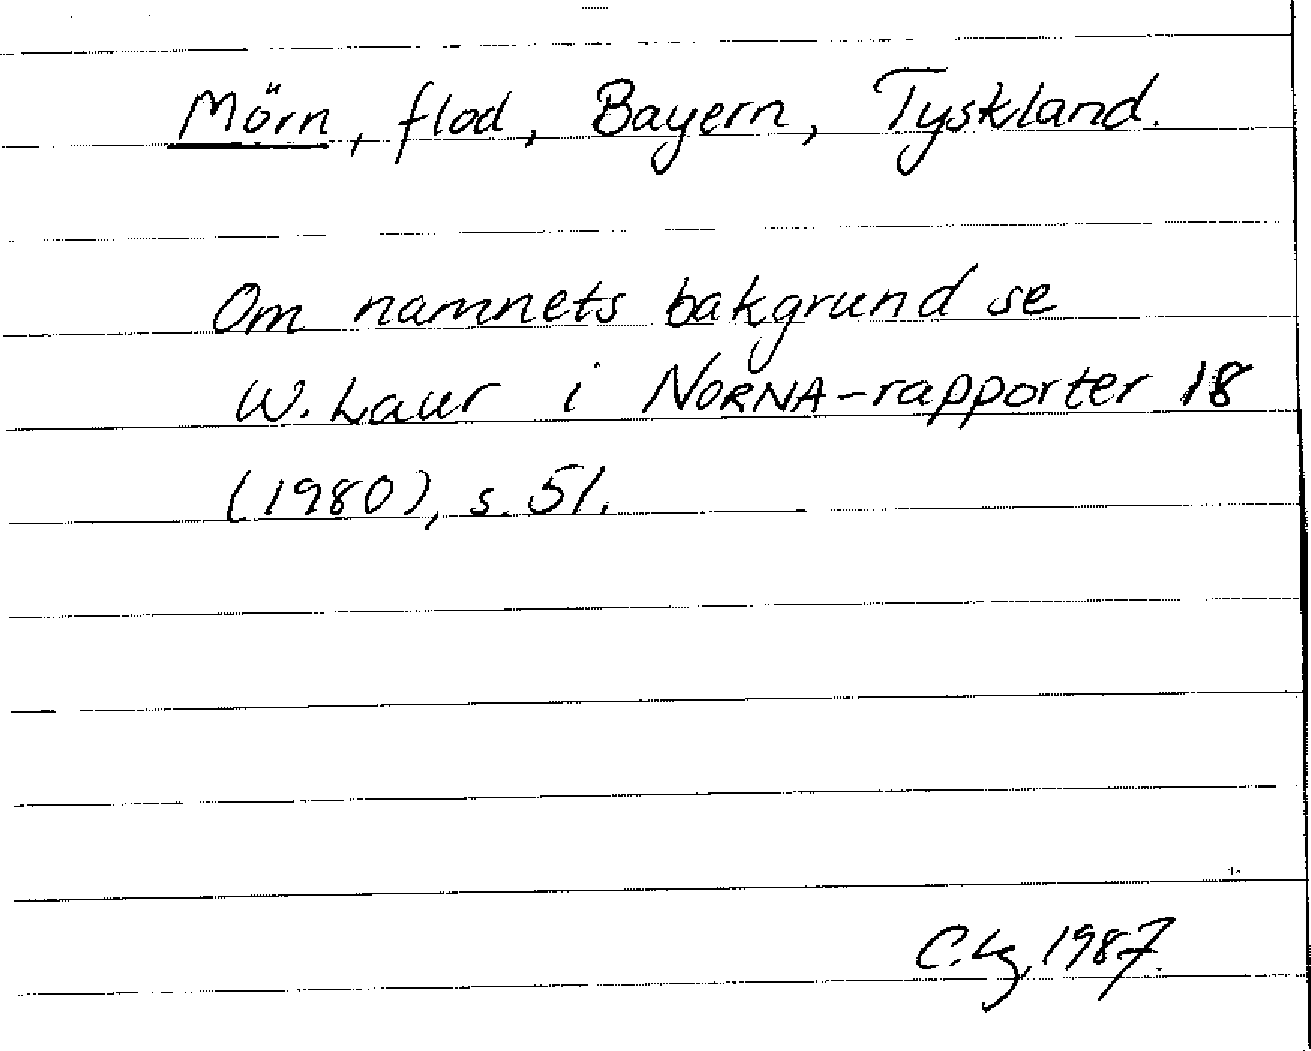 Mörn, flod, Bayern, Tyskland.
Om namnets bakgrund se
W. Laur i NORNA-rapporter 18
(1980), s. 51.
C. Lg, 1987.